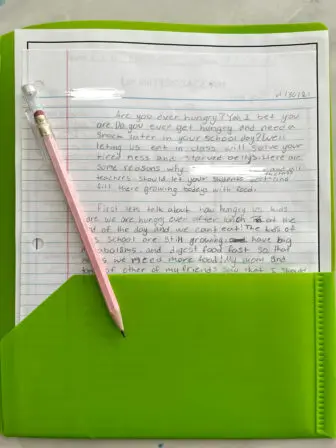 4/30/21
Are you ever hungry? Yah I bet you
are. Do you ever get hungry and need a
snack later in your school day? Well
leting us eat in class will solve your
tired ness and starved bellys. Here are
some reasons why
teachers should let your students eat and
fill there growing bodeys with food.
First lets talk about how hungry us kids
are. We are hungry ever after lunch at the
of the day and we cant eat! The kids of
school are still growing have big
and digest food fast so that
we need more food! My mom and
of other of my friends said that I should